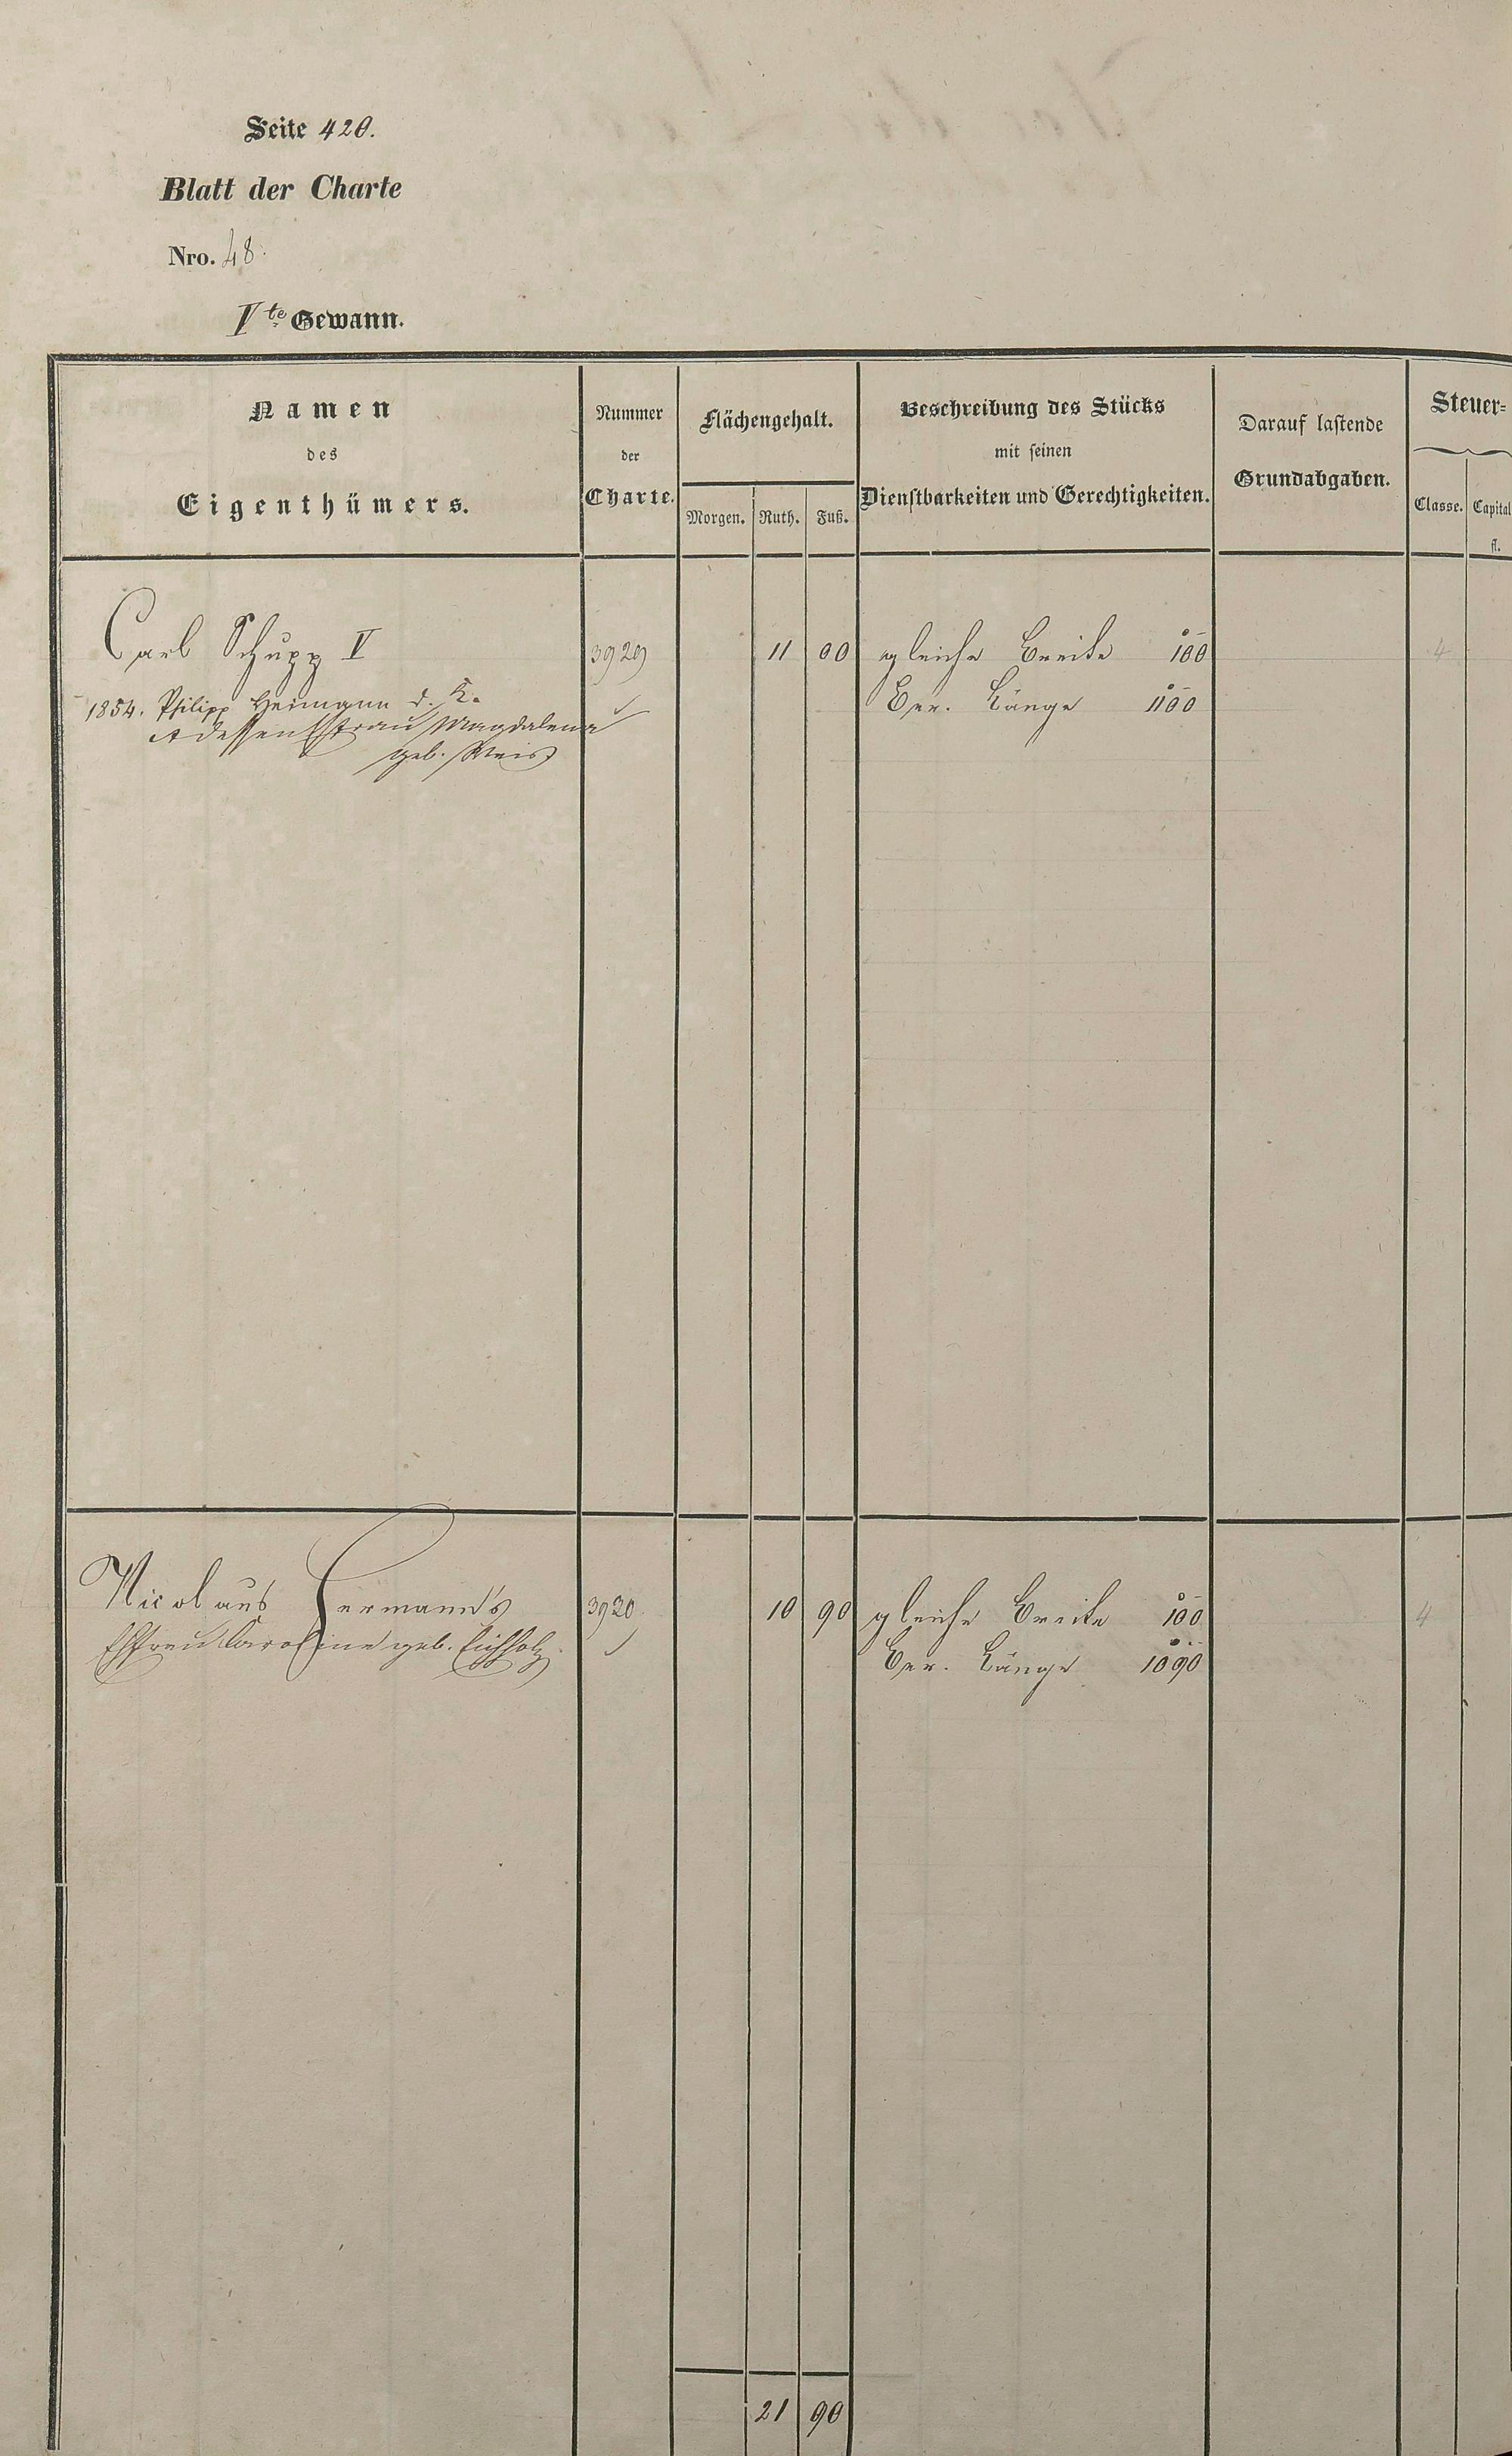 Seite 420.
Blatt der Charte
Nro. 48.
V te Gewann.
Namen
des
Eigenthümers.
Nummer
der
Charte.
Flächengehalt.
Morgen. Ruth. Fuß.
Beschreibung des Stücks
mit seinen
Dienstbarkeiten und Gerechtigkeiten.
Darauf lastende
Grundabgaben.
Steuer=
Classe. Capital
fl.
Carl Schupp V 3929 11 00 gleiche Breite 100 4
1854. Philipp Heimann d. K. Ber. Länge 1100
dessen Ehfrau Magdalena
geb. Weis
Nicolaus Hermann's 3930 10 90 gleiche Breite 100 4
Ehfrau Caroline geb. Eichholz Ber. Länge 1090
21 90